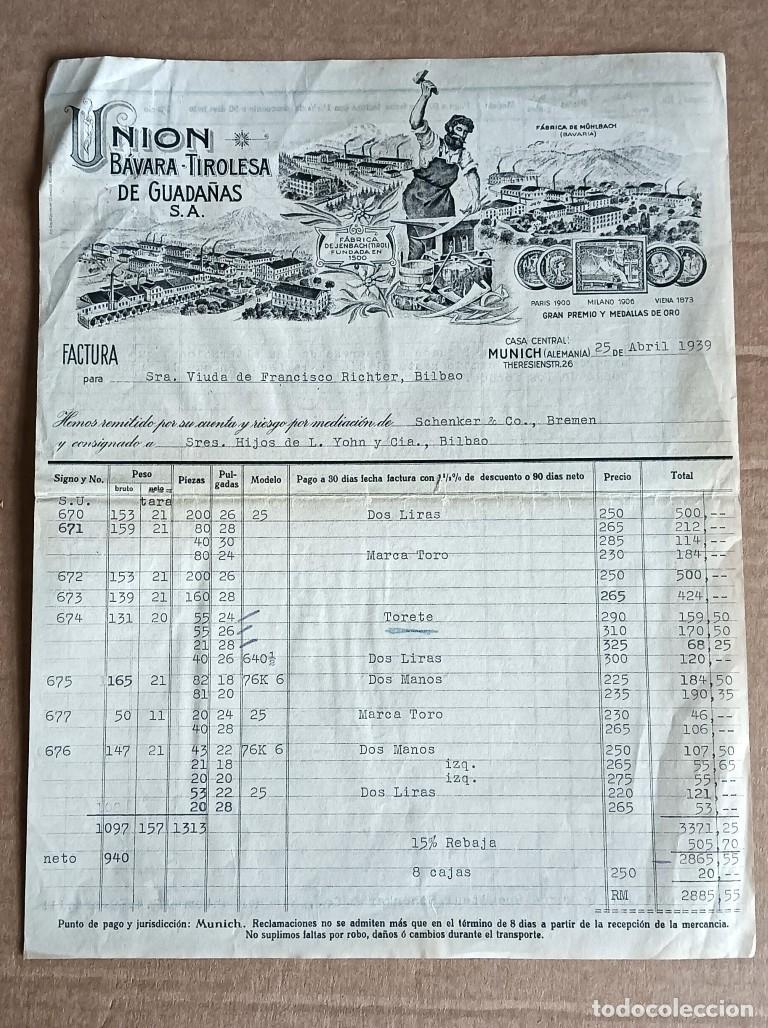 UNION
BÁVARA-TIROLESA
DE GUADAÑAS
S.A.
FÁBRICA DE MÜHLBACH
(BAVARIA)
FÁBRICA
DE JENBACH (TIROL)
FUNDADA EN
1500
PARIS 1900 MILANO 1906 VIENA 1873
GRAN PREMIO Y MEDALLAS DE ORO
CASA CENTRAL:
FACTURA MUNICH (ALEMANIA) 25 DE Abril 1939
THERESIENSTR. 26
para Sra. Viuda de Francisco Richter, Bilbao
Hemos remitido por su cuenta y riesgo por mediación de Schenker & Co., Bremen
y consignado a Sres. Hijos de L. Yohn y Cia., Bilbao
Signo y No. Peso Piezas Pulgadas Modelo Pago a 30 dias fecha factura con 1½% de descuento o 90 dias neto Precio Total
bruto neto
S.U. tara
670 153 21 200 26 25 Dos Liras 250 500,--
671 159 21 80 28 265 212,--
40 30 285 114,--
80 24 Marca Toro 230 184,--
672 153 21 200 26 250 500,--
673 139 21 160 28 265 424,--
674 131 20 55 24 Torete 290 159,50
55 26 310 170,50
21 28 325 68,25
40 26 640½ Dos Liras 300 120,--
675 165 21 82 18 76K 6 Dos Manos 225 184,50
81 20 235 190,35
677 50 11 20 24 25 Marca Toro 230 46,--
40 28 265 106,--
676 147 21 43 22 76K 6 Dos Manos 250 107,50
21 18 izq. 265 55,65
20 20 izq. 275 55,--
53 22 25 Dos Liras 220 121,--
20 28 265 53,--
1097 157 1313 3371,25
15% Rebaja 505,70
neto 940 2865,55
8 cajas 250 20,--
RM 2885,55
Punto de pago y jurisdicción: Munich. Reclamaciones no se admiten más que en el término de 8 dias a partir de la recepción de la mercancia.
No suplimos faltas por robo, daños ó cambios durante el transporte.
todocoleccion